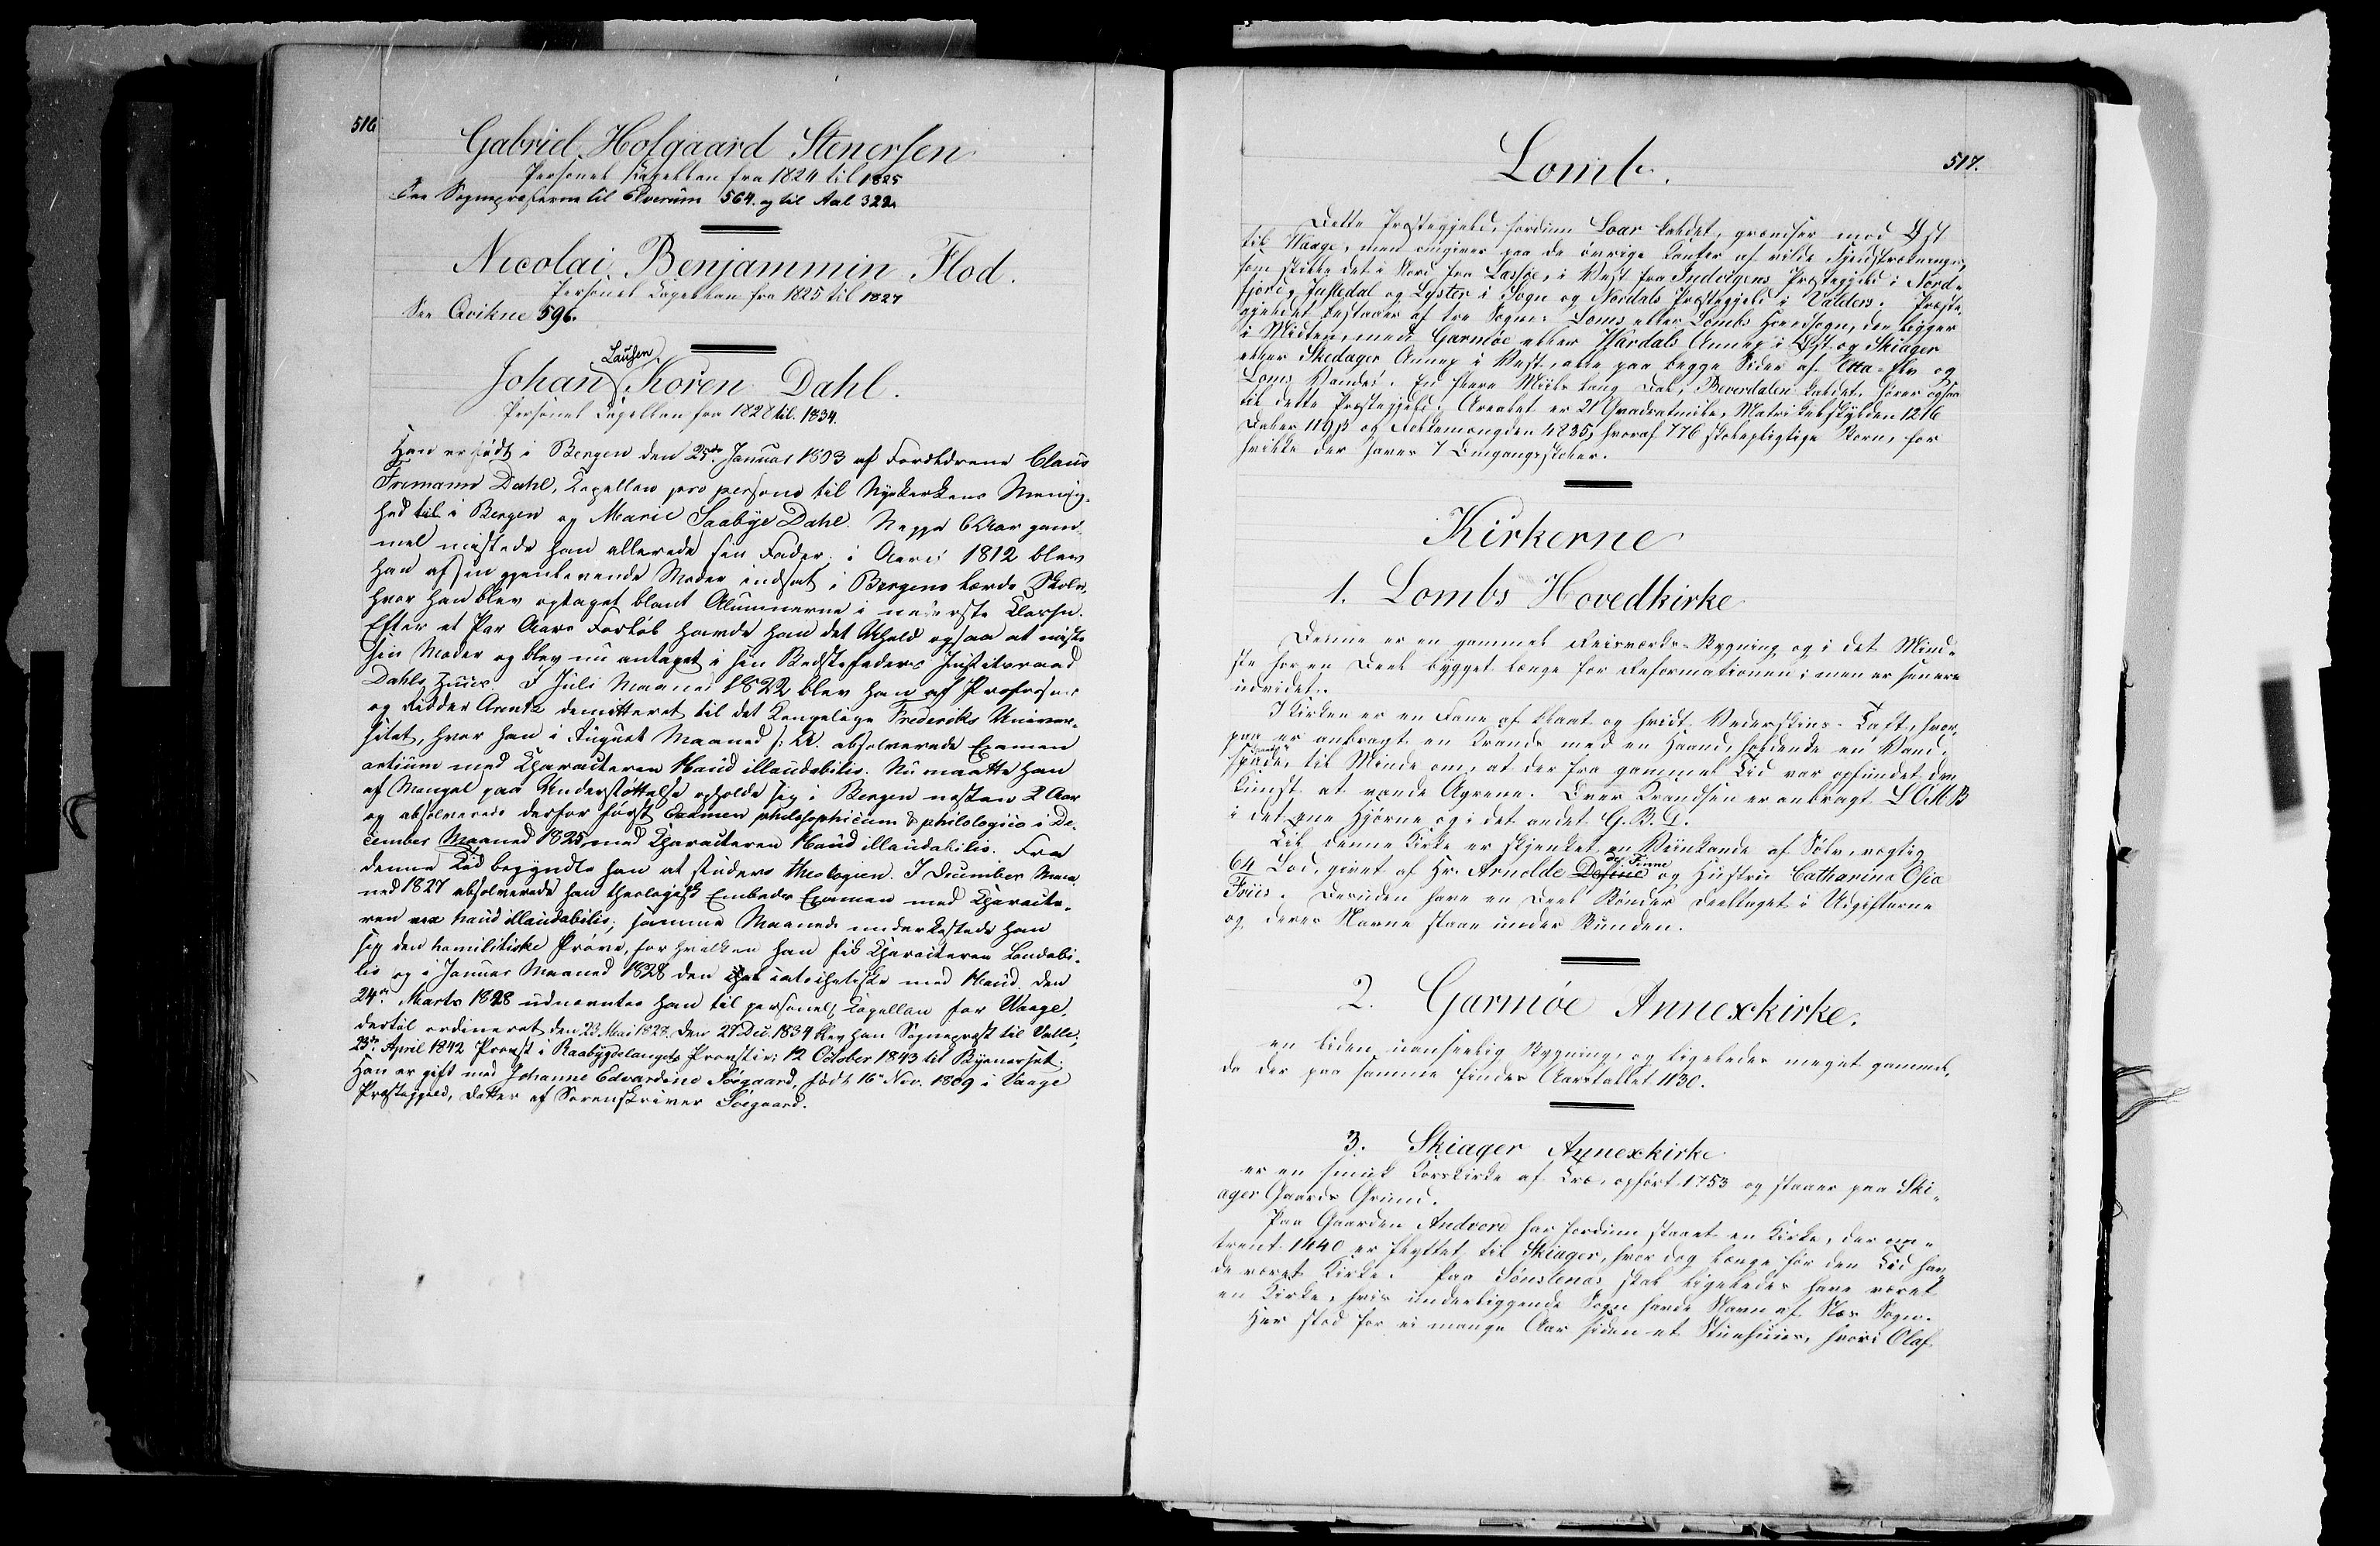 516
Gabriel Hofgaard Stenersen
Personel Kapellan fra 1824 til 1825
See Sognepræsterne til Elverum 564. og til Aal 322.
Nicolai Benjammin Flod.
Personel Kapellan fra 1825 til 1827
See Qvikne 596.
Lausen
Johan Koren Dahl.
Personel Kapellan fra 1828 til 1834.
Han er født i Bergen den 25de Januar 1803 af Forældrene Claus
Frimann Dahl, Kapellan pro persona til Nykirkens Menig-
hed til i Bergen og Marie Saabye Dahl. Neppe 6 Aar gam-
mel mistede han allerede sin Fader. i Aaret 1812 blev
han af sin gjenlevende Moder indsat i Bergens lærde Skole,
hvor han blev optaget blant Alumnerne i nederste Classe.
Efter et Par Aars Forløb havde han det Uheld ogsaa at miste
sin Moder og blev nu antaget i sin Bedstefaders Justitsraad
Dahls Huus. I Juli Maaned 1822 blev han af Professor
og Ridder Arentz demitteret til det Kongelige Frederiks Univer-
sitet, hvor han i August Maaned s: A. absolverede Examen
artium med Characteren Haud illaudabilis. Nu maatte han
af Mangel paa Understøttelse opholde sig i Bergen næsten 2 Aar
og absolverede derfor først Examen philosophicum & philologico i De-
cember Maaned 1825 med Characteren Haud illaudabilis. Fra
denne Tid begyndte han at studere Theologien. I December Maa-
ned 1827 absolverede han theologisk Embeds Examen med Characte-
ren haud illaudabilis; samme Maaned underkastede han
sig den homilitiske Prøve, for hvilken han fik Characteren Laudabi-
lis og i Januar Maaned 1828 den catechetiske med Haud. Den
24de Marts 1828 udnævntes han til personel Kapellan for Waage,
dertil ordineret den 23 Mai 1828. Den 27 Dec. 1834 blev han Sognepræst til Valle;
23de April 1842 Provst i Raabygdelangets Provsti; 12 October 1843 til Bynæsset.
Han er gift med Johanne Edvardine Søegaard, født 16 Nov. 1809 i Vaage
Præstegjeld, Datter af Sorenskriver Søegaard.
517.
Lomb.
Dette Præstegjeld, fordum Loar kaldet, grændser mod Øst
til Waage, men omgives paa de øvrige Kanter af vilde Fjeldstrækninger,
som skille det i Nord fra Lassøe, i Vest fra Indvigens Præstegjeld i Nord-
fjord, Justedal og Lyster i Sogn og Nordals Præstegjeld i Valders. Præste-
gjeldet bestaaer af tre Sogne: Loms eller Lombs Hovedsogn, der ligger
i Midten, med Garmøe eller Wardals Annex i Øst og Skiager
eller Skedager Annex i Vest, alle paa begge Sider af Otta-Elv og
Loms Vandet. En flere Miile lang Dal, Beverdalen kaldet, hører ogsaa
til dette Præstegjeld. Arealet er 21 Qvadratmile, Matrikelskylden 1216
Daler 119 ß og Folkemængden 4835, hvoraf 776 skolepligtige Børn, for
hvilke der haves 7 Omgangsskoler.
Kirkerne
1. Lombs Hovedkirke
Denne er en gammel Reisværks-Bygning og i det Mind-
ste for en Deel bygget længe for Reformationen; men er senere
udvidet.
I Kirken er en Fane af blaat og hvidt Taft, hvor-
paa er anbragt en Krands med en Haand, holdende en Vand-
spade, til Minde om, at der fra gammel Tid var opfundet den
Kunst at vande Agrene. Over Krandsen er anbragt LOMB
i det ene Hjørne og i det andet G. B. D.
Til denne Kirke er skjenket en Viinkande af Sølv, vægtig
64 Lod, givet af Hr. Arnoldo de Finne og Hustru Catharina Osia
Friis. Desuden have en Deel Bønder deeltaget i Udgifterne
og deres Navne staae under Bunden.
2. Garmøe Annexkirke.
en liden uanseelig Bygning, og ligeledes meget gammel,
da der paa samme findes Aarstallet 1130.
3. Skiager Annexkirke
er en smuk Korskirke af Træ, opført 1753 og staaer paa Ski-
ager Gaards Grund.
Paa Gaarden Andvord har fordum staaet en Kirke, der om-
trent 1440 er flyttet til Skiager, hvor dog længe før den Tid hav-
de været Kirke. Paa Sønstenæs skal ligeledes have været
en Kirke, hvis underliggende Sogn havde Navn af Næs Sogn.
Her stod for ei mange Aar siden et Stuehuus, hvori Olaf